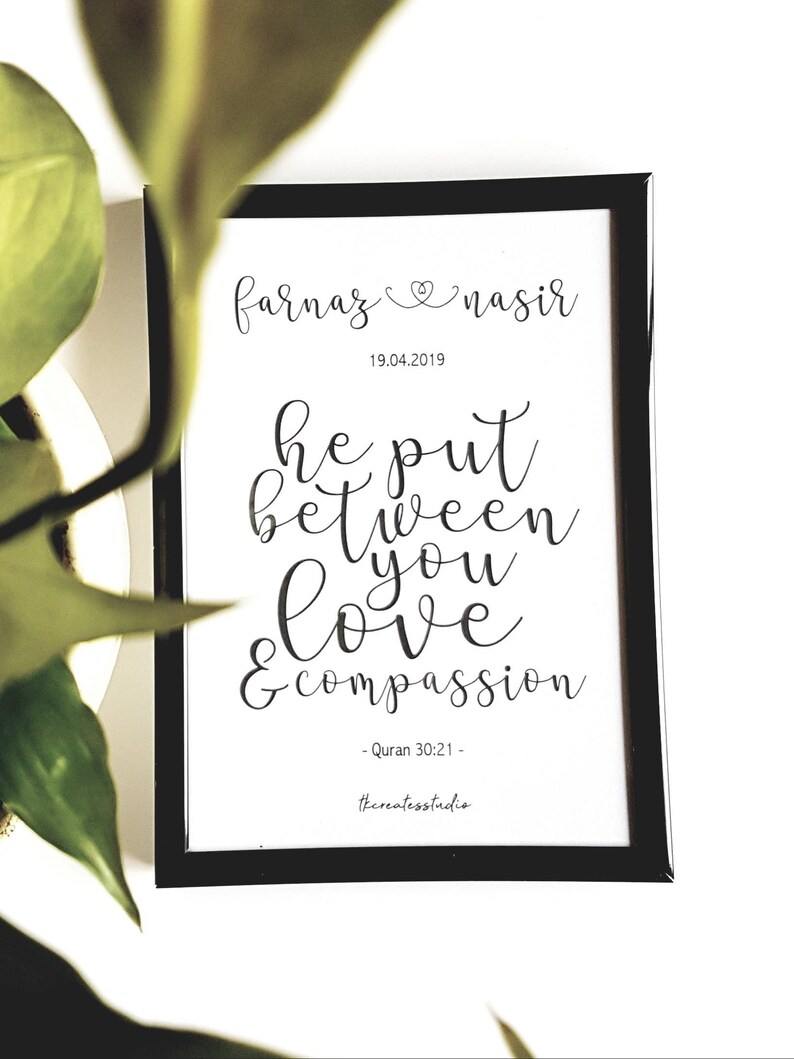 farnaz nasir
19.04.2019
he put
between
you
love
& compassion
- Quran 30:21 -
tkcreatesstudio